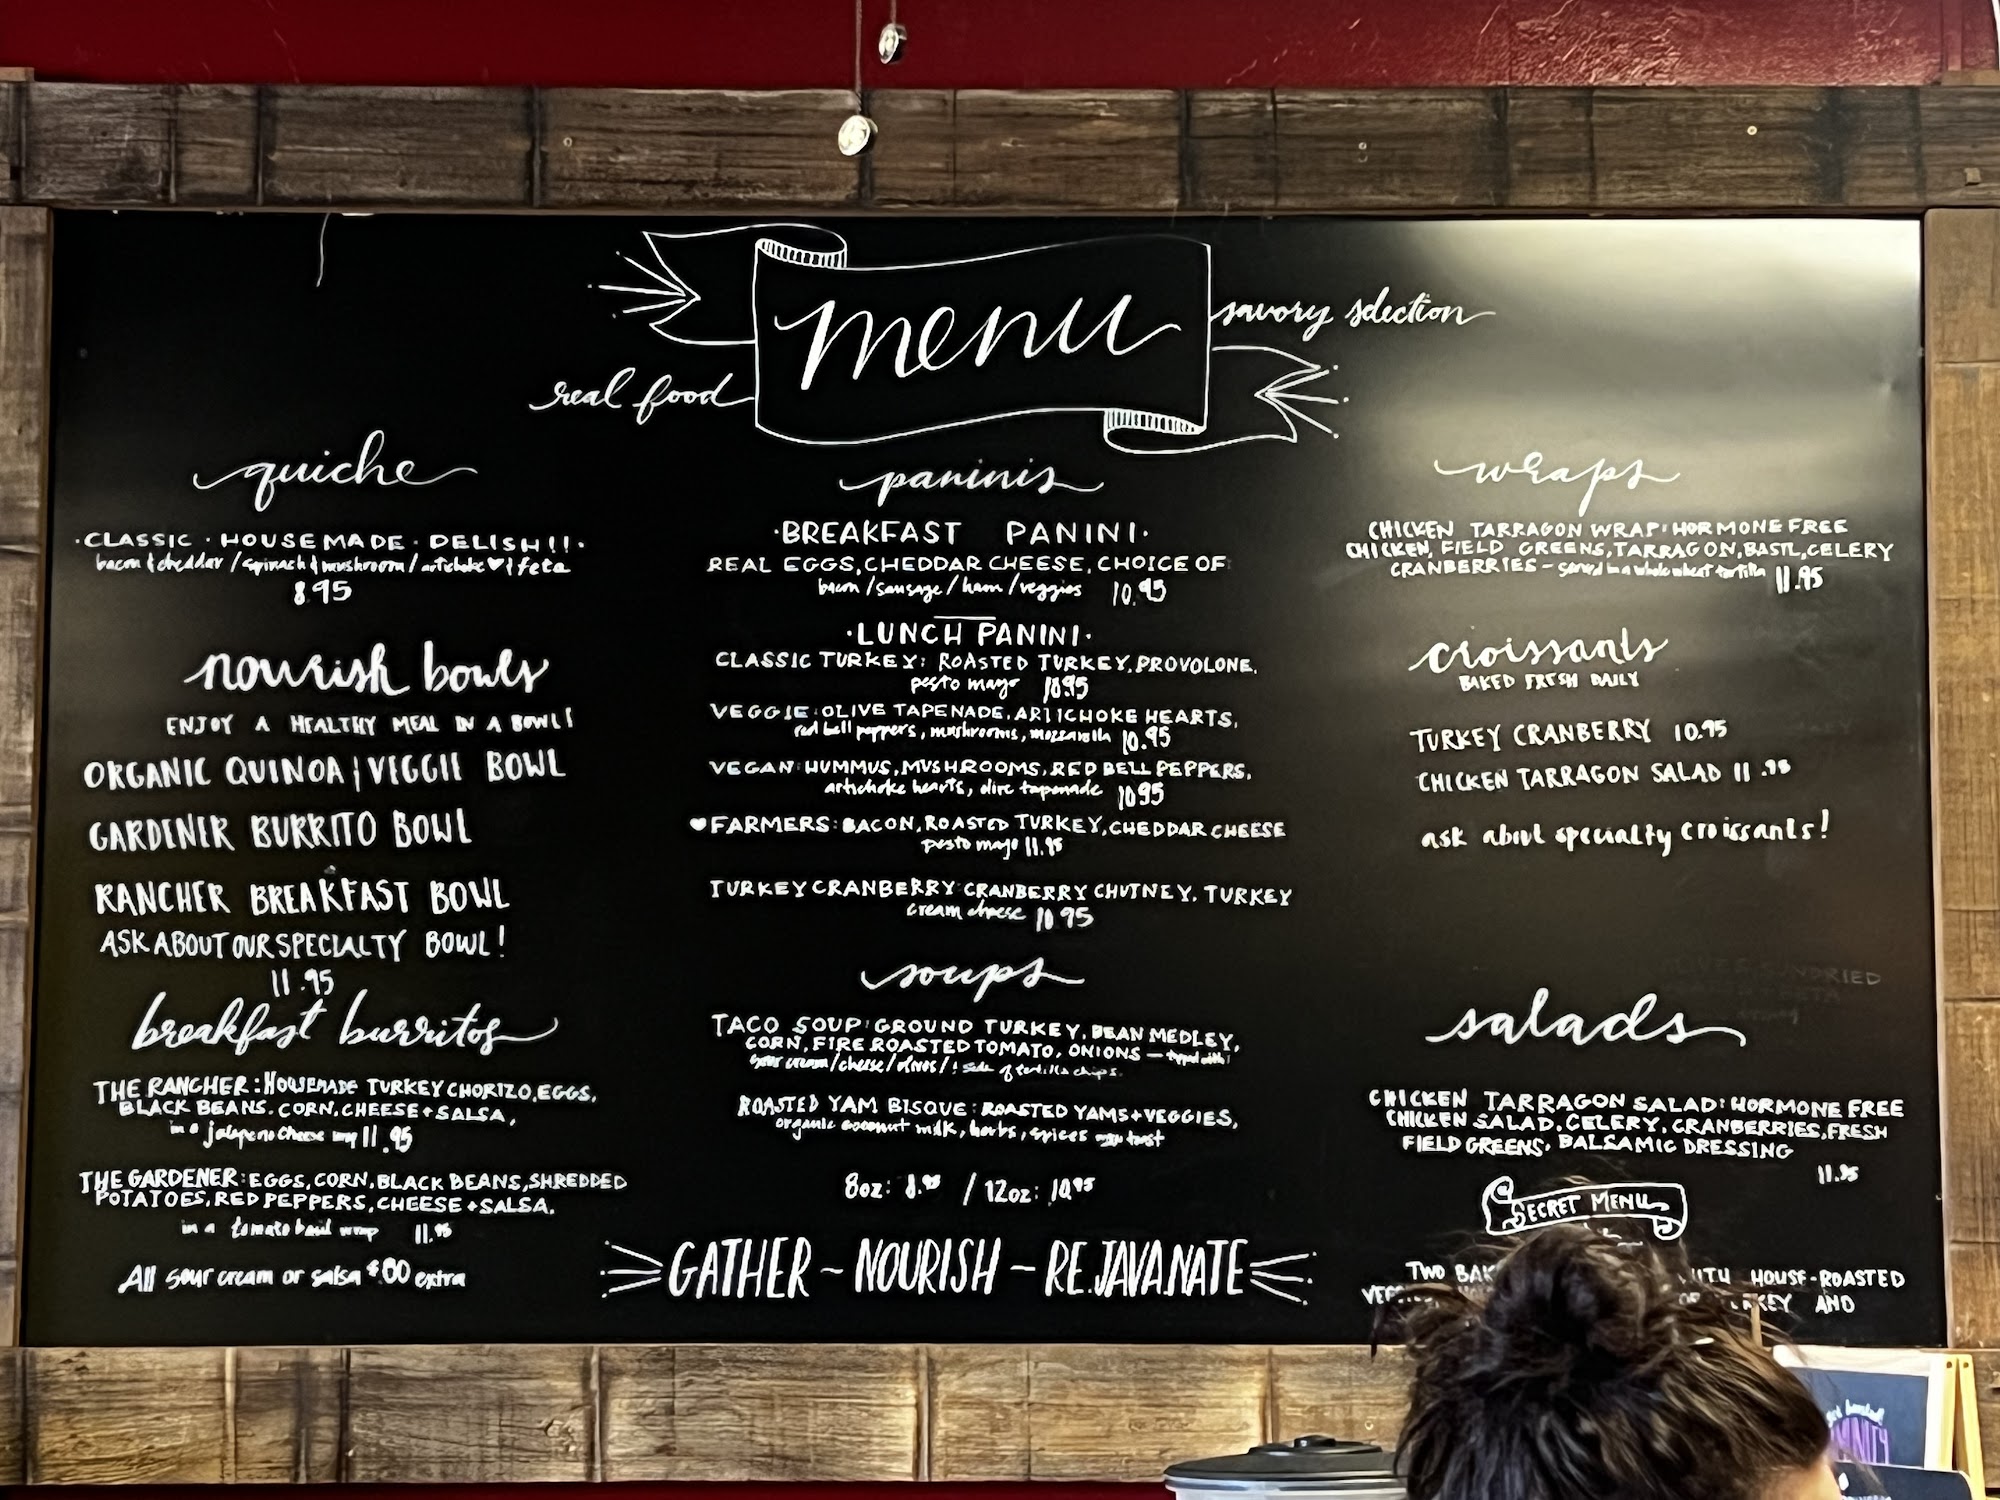 menu
savory selection
real food
quiche
·CLASSIC · HOUSEMADE · DELISH!!·
bacon & cheddar / spinach & mushroom / artichoke ♥ & feta
8.95
nourish bowls
ENJOY A HEALTHY MEAL IN A BOWL!
ORGANIC QUINOA | VEGGIE BOWL
GARDENER BURRITO BOWL
RANCHER BREAKFAST BOWL
ASK ABOUT OUR SPECIALTY BOWL!
11.95
breakfast burritos
THE RANCHER: HOUSEMADE TURKEY CHORIZO, EGGS,
BLACK BEANS, CORN, CHEESE + SALSA,
in a jalapeno cheese wrap 11.95
THE GARDENER: EGGS, CORN, BLACK BEANS, SHREDDED
POTATOES, RED PEPPERS, CHEESE + SALSA.
in a tomato basil wrap 11.95
All sour cream or salsa $.60 extra
paninis
·BREAKFAST PANINI·
REAL EGGS, CHEDDAR CHEESE, CHOICE OF
bacon / sausage / ham / veggies 10.95
·LUNCH PANINI·
CLASSIC TURKEY: ROASTED TURKEY, PROVOLONE,
pesto mayo 10.95
VEGGIE: OLIVE TAPENADE, ARTICHOKE HEARTS,
red bell peppers, mushrooms, mozzarella 10.95
VEGAN: HUMMUS, MUSHROOMS, RED BELL PEPPERS,
artichoke hearts, olive tapenade 10.95
♥FARMERS: BACON, ROASTED TURKEY, CHEDDAR CHEESE
pesto mayo 11.95
TURKEY CRANBERRY: CRANBERRY CHUTNEY, TURKEY
cream cheese 10.95
soups
TACO SOUP: GROUND TURKEY, BEAN MEDLEY,
CORN, FIRE ROASTED TOMATO, ONIONS – topped with:
sour cream / cheese / olives / & side of tortilla chips.
ROASTED YAM BISQUE: ROASTED YAMS + VEGGIES,
organic coconut milk, herbs, spices toast
8oz: 8.95 / 12oz: 10.95
GATHER ~ NOURISH ~ RE.JAVA.NATE
wraps
CHICKEN TARRAGON WRAP: HORMONE FREE
CHICKEN, FIELD GREENS, TARRAGON, BASIL, CELERY
CRANBERRIES – served in a whole wheat tortilla 11.95
croissants
BAKED FRESH DAILY
TURKEY CRANBERRY 10.95
CHICKEN TARRAGON SALAD 11.95
ask about specialty croissants!
SUNDRIED
salads
CHICKEN TARRAGON SALAD: HORMONE FREE
CHICKEN SALAD, CELERY, CRANBERRIES, FRESH
FIELD GREENS, BALSAMIC DRESSING
11.95
SECRET MENU
TWO WITH HOUSE-ROASTED
AND